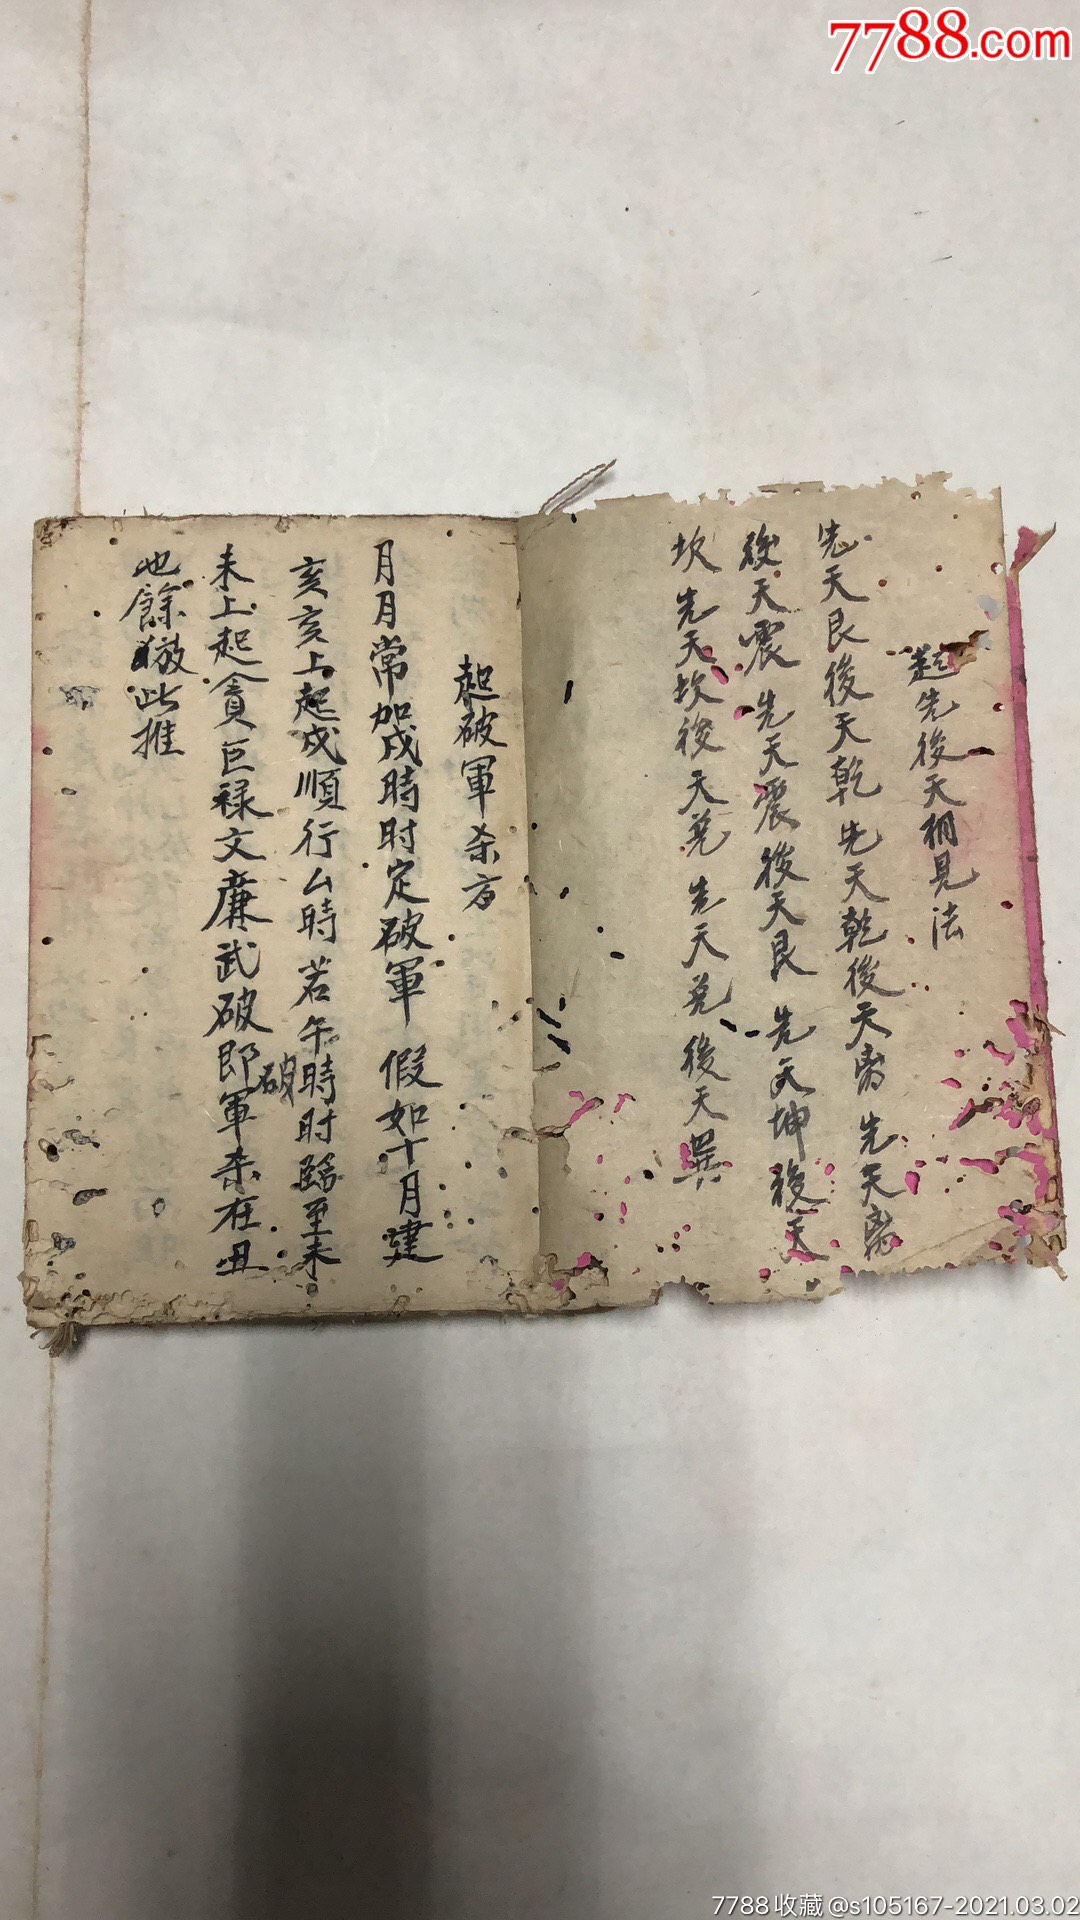 7788.com
起先後天相見法
先天艮後天乾 先天乾後天离 先天离
後天震 先天震後天艮 先天坤後天
坎 先天坎後天兑 先天兑後天巽
起破軍杀方
月月常加戍時时定破軍 假如十月建
亥亥上起戍順行厶時若午時时臨至未
未上起貪巨禄文廉武破即軍杀在丑
破
也餘倣此推
7788收藏@s105167-2021.03.02